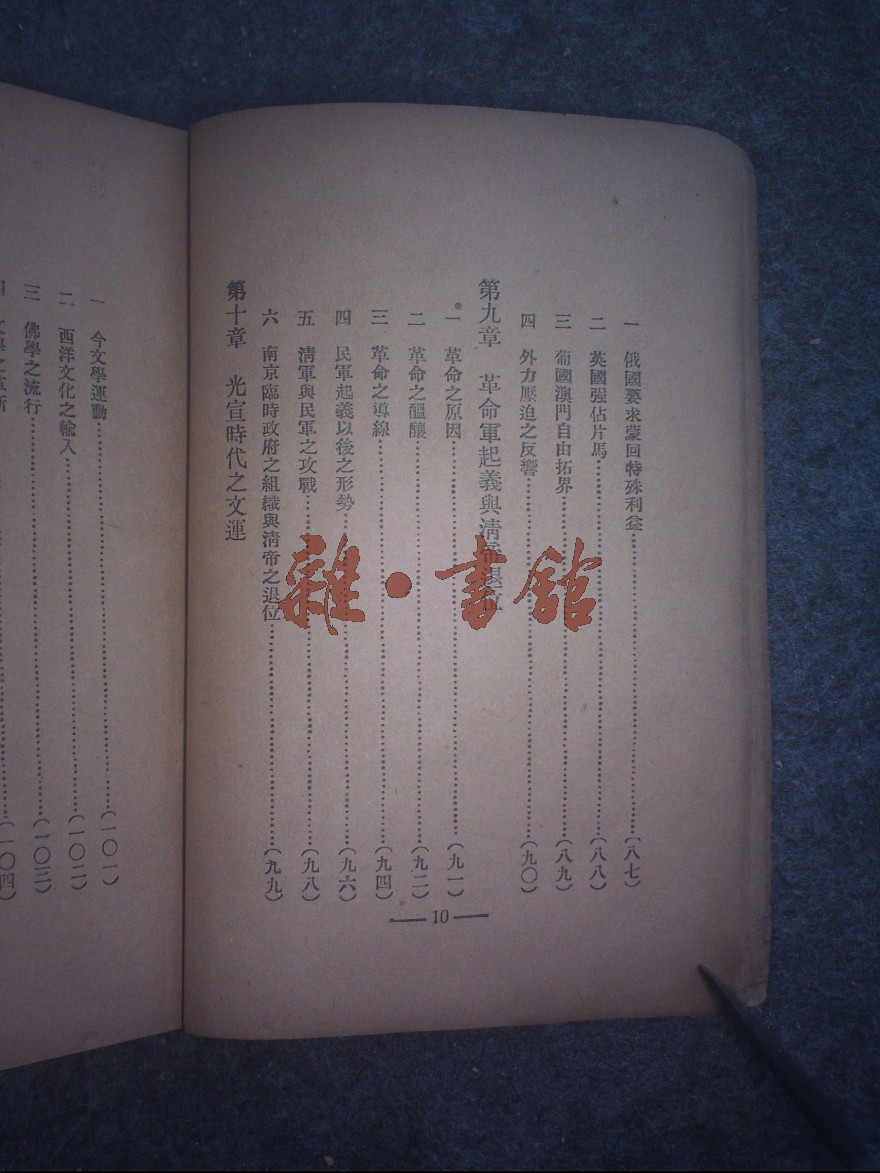 一　俄國要求蒙回特殊利益…………(八七)
二　英國强佔片馬…………(八八)
三　葡國澳門自由拓界…………(八九)
四　外力壓迫之反響…………(九〇)
第九章　革命軍起義與清帝退位
一　革命之原因…………(九一)
二　革命之醞釀…………(九二)
三　革命之導線…………(九四)
四　民軍起義以後之形勢…………(九六)
五　清軍與民軍之攻戰…………(九八)
六　南京臨時政府之組織與清帝之退位…………(九九)
第十章　光宣時代之文運
— 10 —
一　今文學運動…………(一〇一)
二　西洋文化之輸入…………(一〇二)
三　佛學之流行…………(一〇三)
四　文學之革新…………(一〇四)
雜·書館